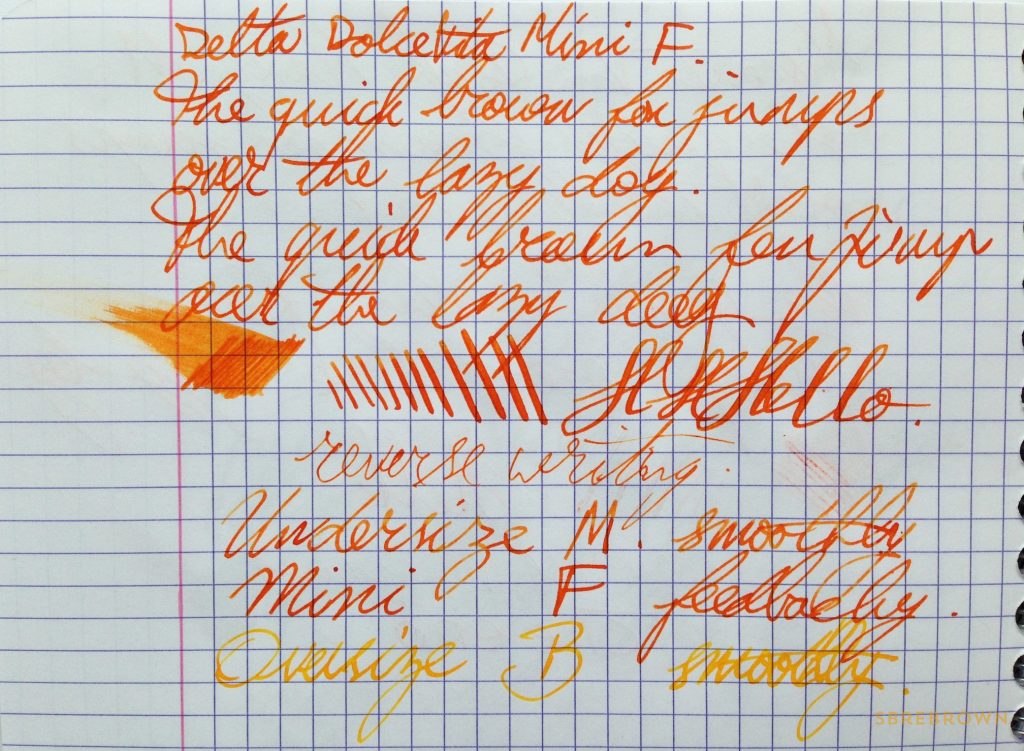 Delta Dolcevita Mini F.
The quick brown fox jumps
over the lazy dog.
The quick brown fox jump
over the lazy dog
H H Hello.
reverse writing.
Undersize M. smoothly
Mini F feedbacky.
Oversize B smoothly.
SBREBROWN